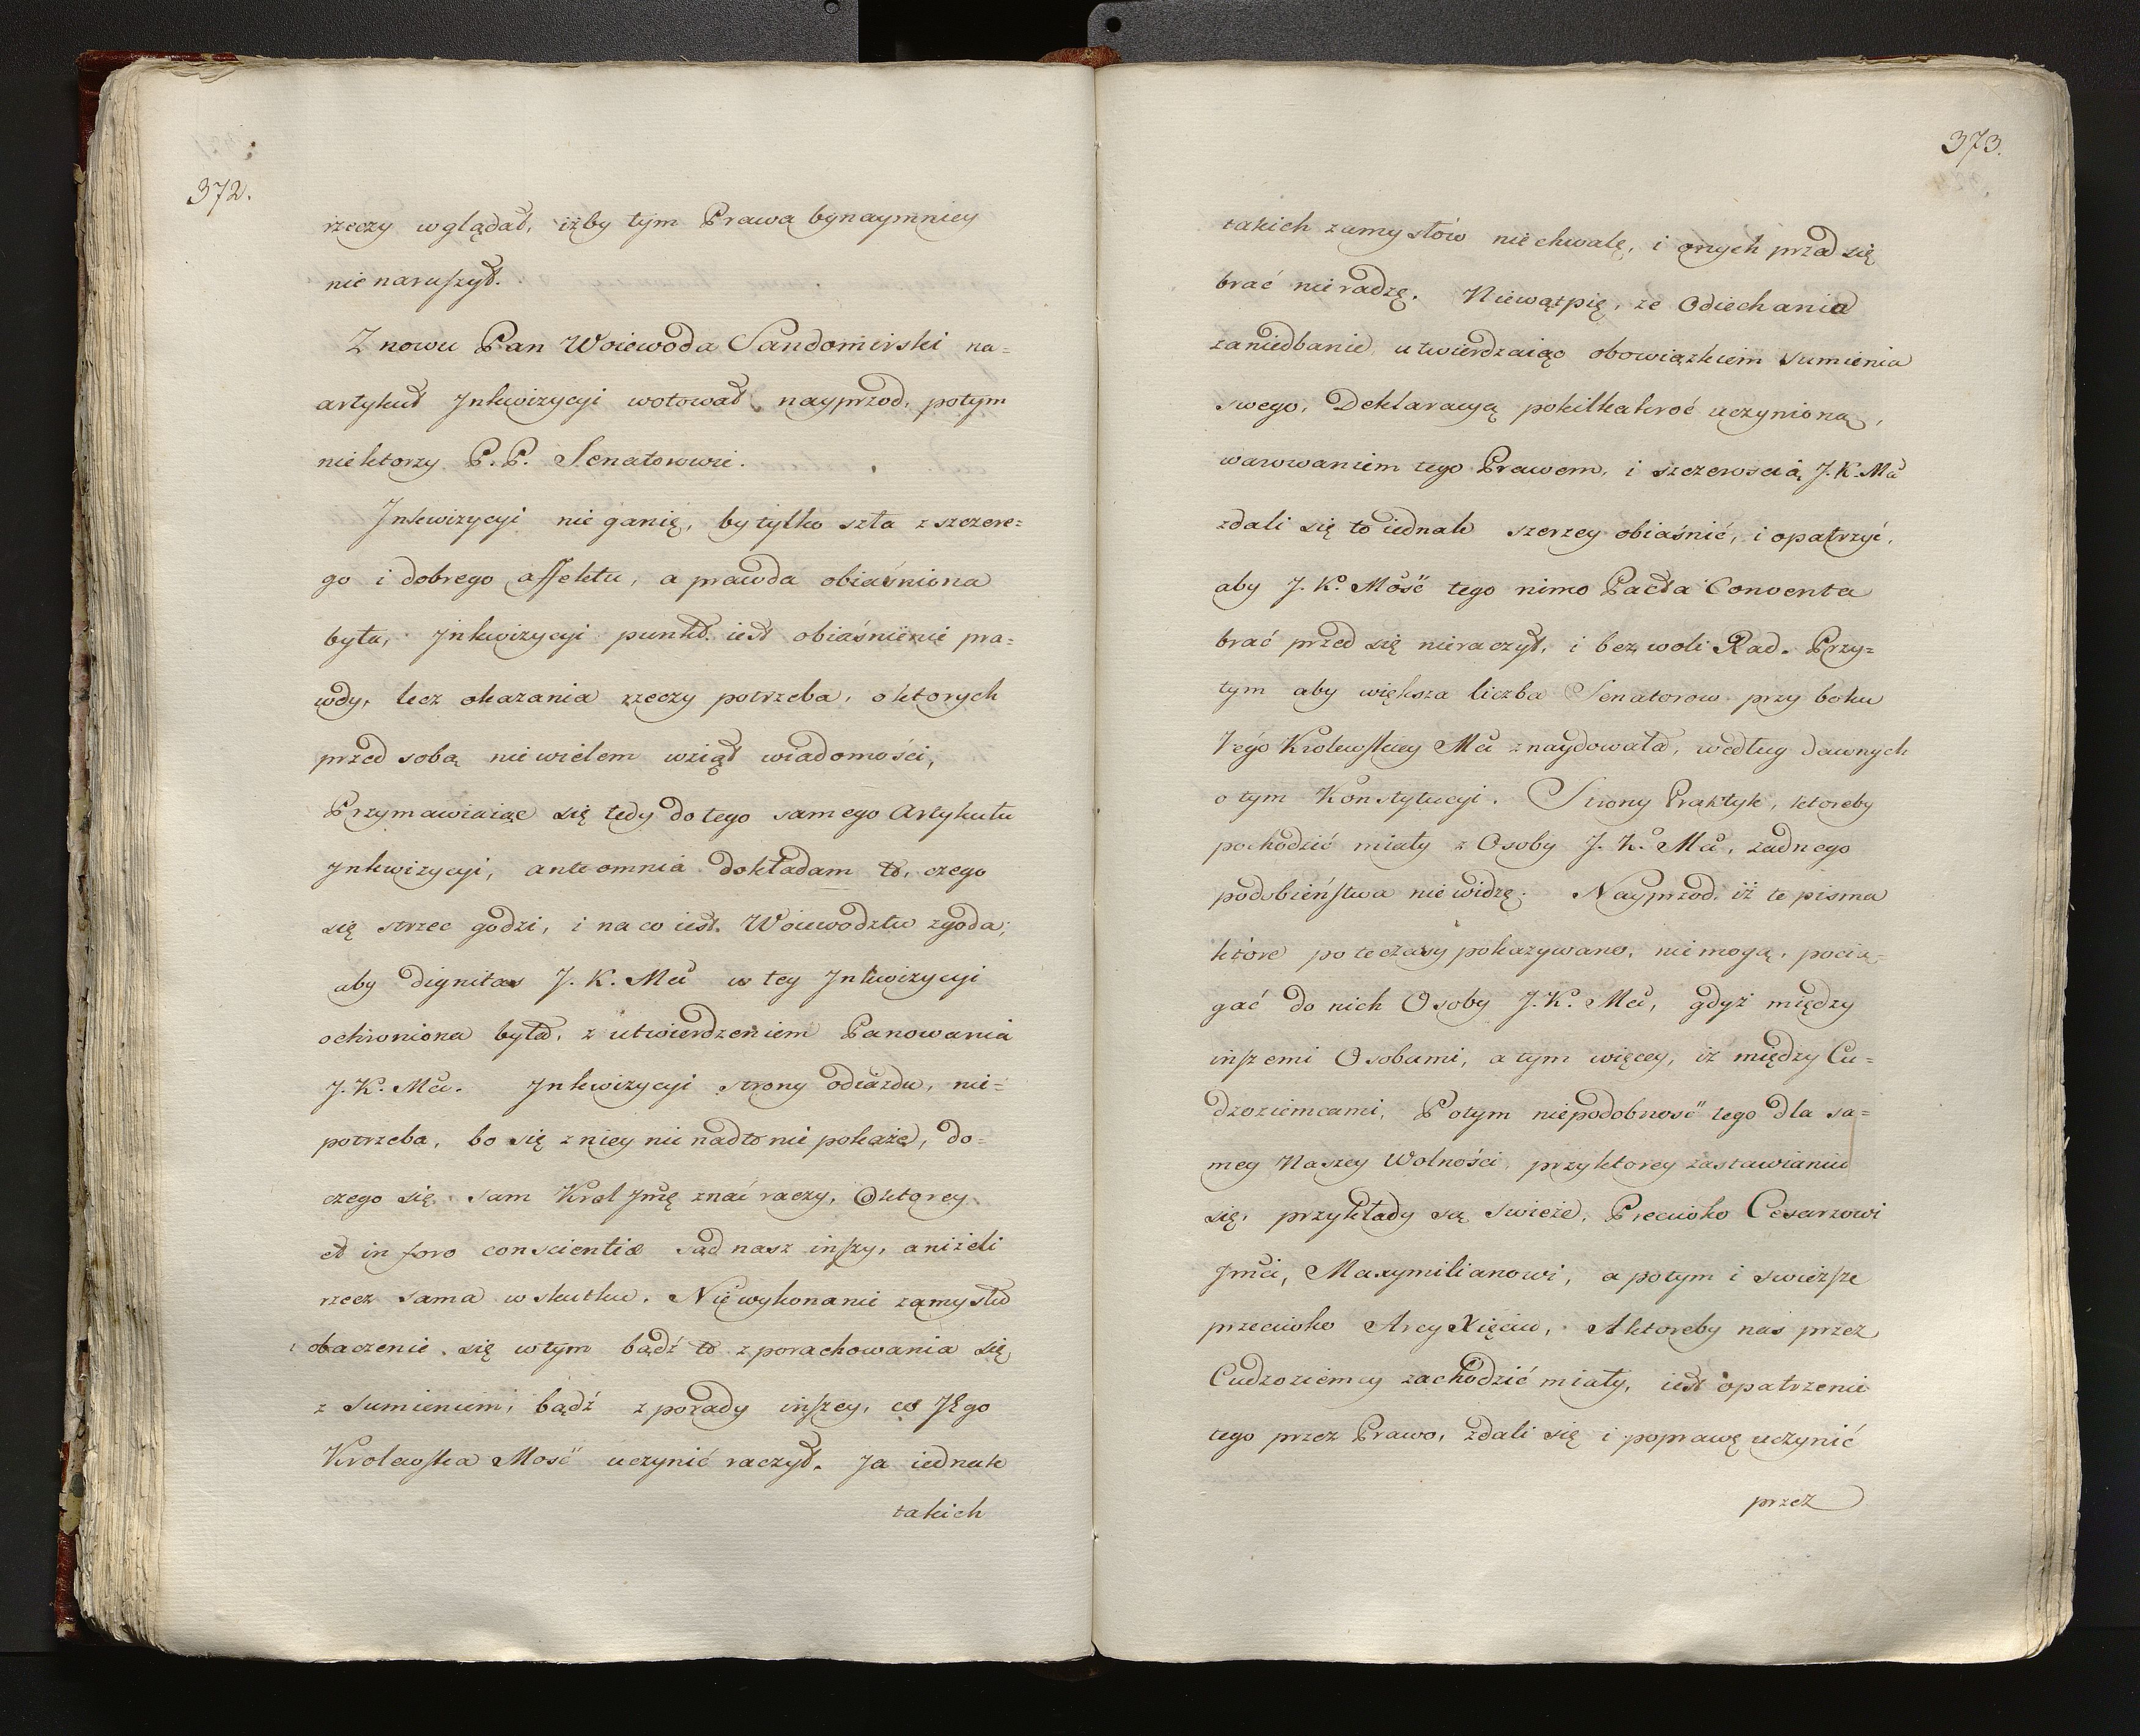 372.
rzeczy wglądał, iżby tym Prawa bynaymniey
nienaruszył.
Znowu Pan Woiewoda Sandomirski na=
artykuł Jnkwizycyi wotował nayprzod, potym
niektorzy P.P. Senatorowie.
Jnkwizycyi nie ganię, by tylko szła z szczere=
go i dobrego affektu, a prawda obiaśniona
była, Jnkwizycyi punkt iest obiaśnienie pra=
wdy, lecz okazania rzeczy potrzeba, o ktorych
przed sobą niewielem wziął wiadomości,
Przymawiaiąc się tedy do tego samego Artykułu
Jnkwizycyi, ante omnia dokładam to, czego
się strzec godzi, i na co iest Woiewodztw zgoda;
aby dignitas J. K. Mci w tey Jnkwizycyi
ochroniona była, z utwierdzeniem Panowania
J. K. Mci. Jnkwizycyi strony odiazdu, nie=
potrzeba, bo się z niey nie nadto nie pokaże, do=
czego się sam Krol Jmć znać raczy, O ktorey
et in foro conscientiæ sąd nasz inszy, aniżeli
rzecz sama w skutku. Niewykonanie zamysłu
obaczenie się w tym bądź to z porachowania się
z sumieniem, bądź z porady inszey, co JEgo
Krolewska Mość uczynić raczył. Ja iednak
takich
373.
takich zamysłów niechwalę, i onych przed się
brać nieradzę. Niewątpię, że Odiechania
zaniedbanie, utwierdzaiąc obowiązkiem sumienia
swego, Deklaracyą pokilkakroć uczynioną,
warowaniem tego Prawem, i szczerością J. K. Mci
zdali się to iednak szerzey obiaśnić, i opatrzyć,
aby J. K. Mość tego nimo Pacta Conventa
brać przed się nieraczył, i bez woli Rad. Przy=
tym aby większa liczba Senatorow przy boku
Jego Krolewskiey Mci znaydowała, według dawnych
o tym Konstytucyi. Strony Praktyk, ktoreby
pochodzić miały z Osoby J. K. Mci, żadnego
podobieństwa niewidzę. Nayprzod, iż te pisma
które po te czasy pokazywano, niemogą, pocią=
gać do nich Osoby J. K. Mci, gdyż między
inszemi Osobami, a tym więcey, iż między Cu=
dzoziemcami, Potym niepodobność tego dla sa=
mey Naszey Wolności, przy ktorey zastawianiu
się, przykłady są świeże, Przeciwko Cesarzowi
Jmci, Maxymilianowi, a potym i swieższe
przeciwko Arcy Xięciu, A ktoreby nas przez
Cudzoziemcy zachodzić miały, iest opatrzenie
tego przez Prawo, zdali się i poprawę uczynić
przez